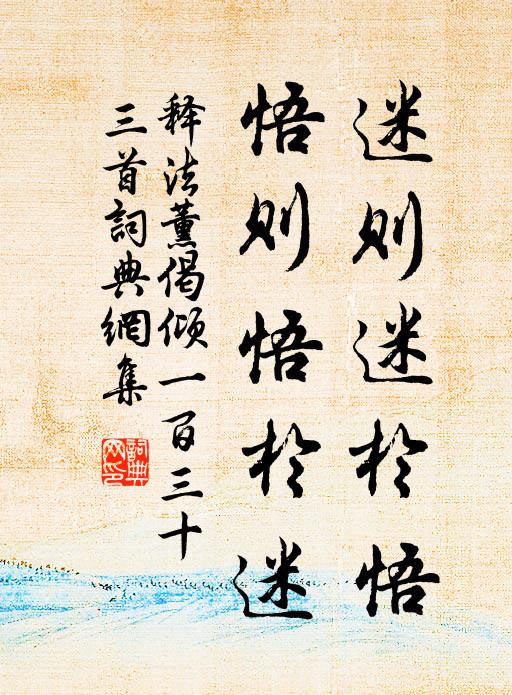 迷则迷於悟
悟则悟於迷
释法薰偈倾一百三十
三首詞典網集
詞典
网印